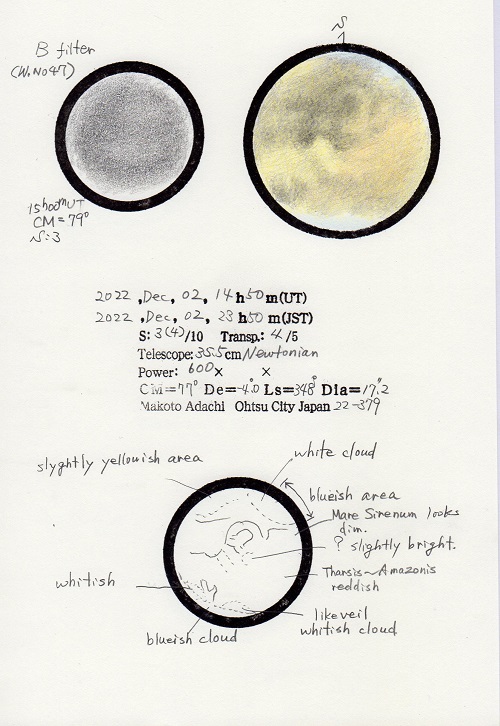 B filter
(W.No47)
S
15h00mUT
CM=79°
S:3
2022 ,Dec, 02, 14h50m(UT)
2022 ,Dec, 02, 23h50m(JST)
S: 3(4)/10 Transp.: 4/5
Telescope: 35.5cm Newtonian
Power: 600× ×
CM=77° De=-4.0° Ls=348° Dia=17.2"
Makoto Adachi Ohtsu City Japan 22-379
slyghtly yellowish area
white cloud
blueish area
Mare Sirenum looks
dim.
? slightly bright.
Tharsis~Amazonis
reddish
whitish
like veil
whitish cloud
blueish cloud